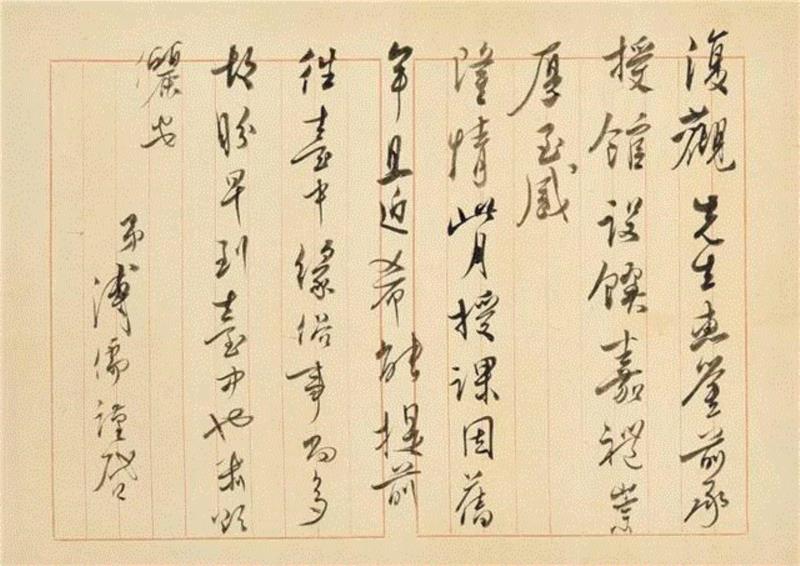 復觀先生惠鑒前承
授館設饌嘉禮崇
厚至感
隆情此月授課因舊
年且近希能提前
往臺中緣俗事為多
故盼早到臺中也肅頌
儷安
弟溥儒謹啓